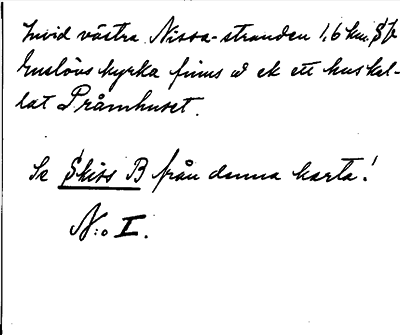 Invid västra Nissa-stranden 1,6 km. S
Enslövs kyrka finns ett hus kal-
lat Pråmhuset.
Se Skiss B från denna karta!
N:o I.